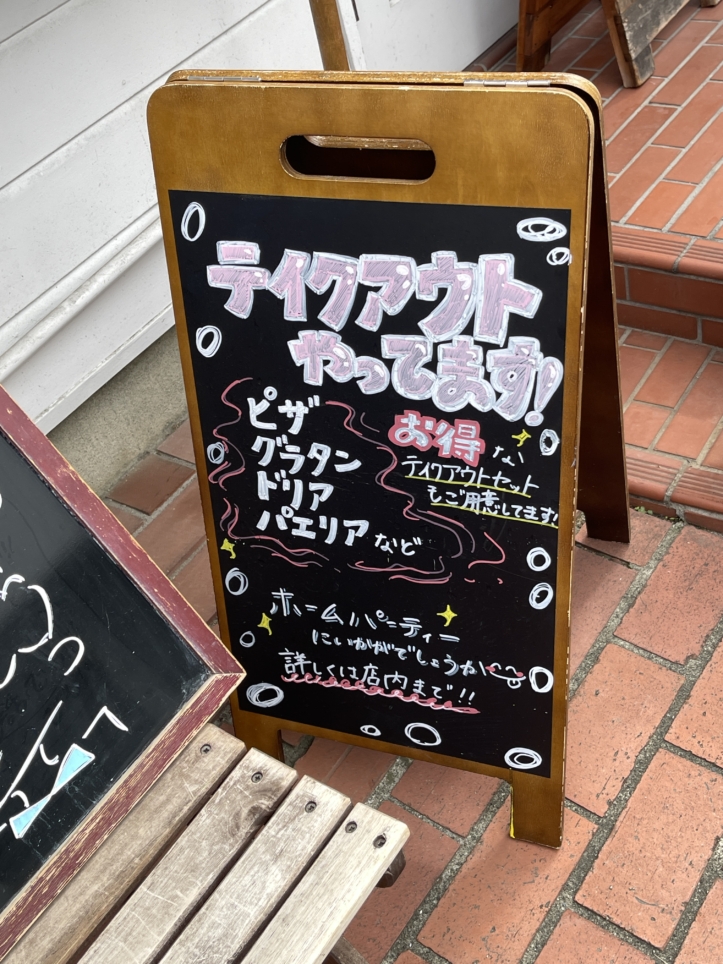 テイクアウト
やってます!
ピザ
グラタン
ドリア
パエリア など
お得な
テイクアウトセット
もご用意してます!
ホームパーティー
にいかがでしょうか
詳しくは店内まで!!